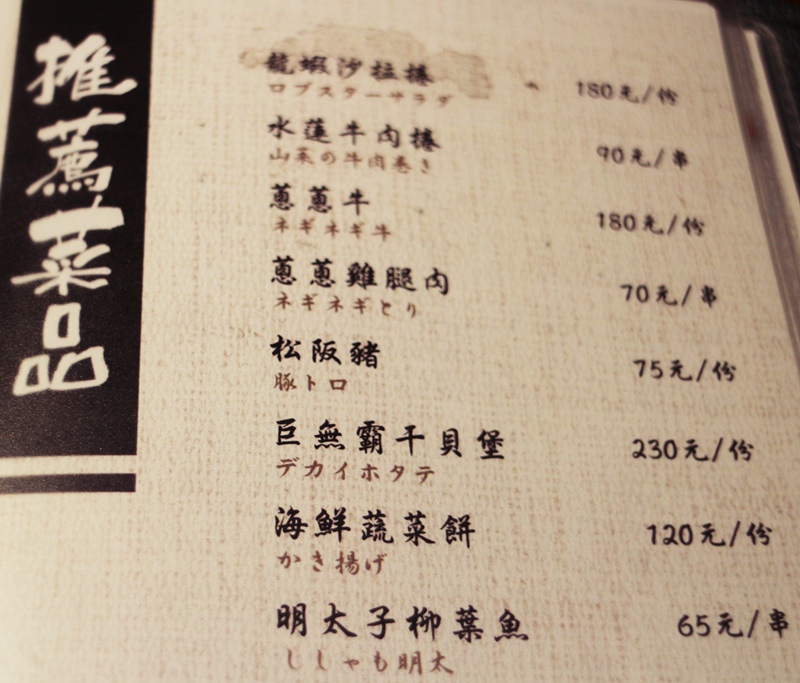 推薦菜品
龍蝦沙拉捲 180元/份
ロブスターサラダ
水蓮牛肉捲 90元/串
山菜の牛肉巻き
蔥蔥牛 180元/份
ネギネギ牛
蔥蔥雞腿肉 70元/串
ネギネギとり
松阪豬 75元/份
豚トロ
巨無霸干貝堡 230元/份
デカイホタテ
海鮮蔬菜餅 120元/份
かき揚げ
明太子柳葉魚 65元/串
ししゃも明太